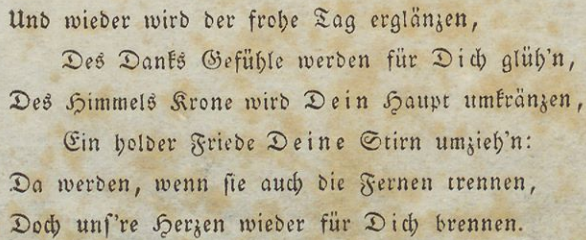 Und wieder wird der frohe Tag erglänzen,
Des Danks Gefühle werden für Dich glüh'n,
Des Himmels Krone wird Dein Haupt umkränzen,
Ein holder Friede Deine Stirn umzieh'n:
Da werden, wenn sie auch die Fernen trennen,
Doch uns're Herzen wieder für Dich brennen.